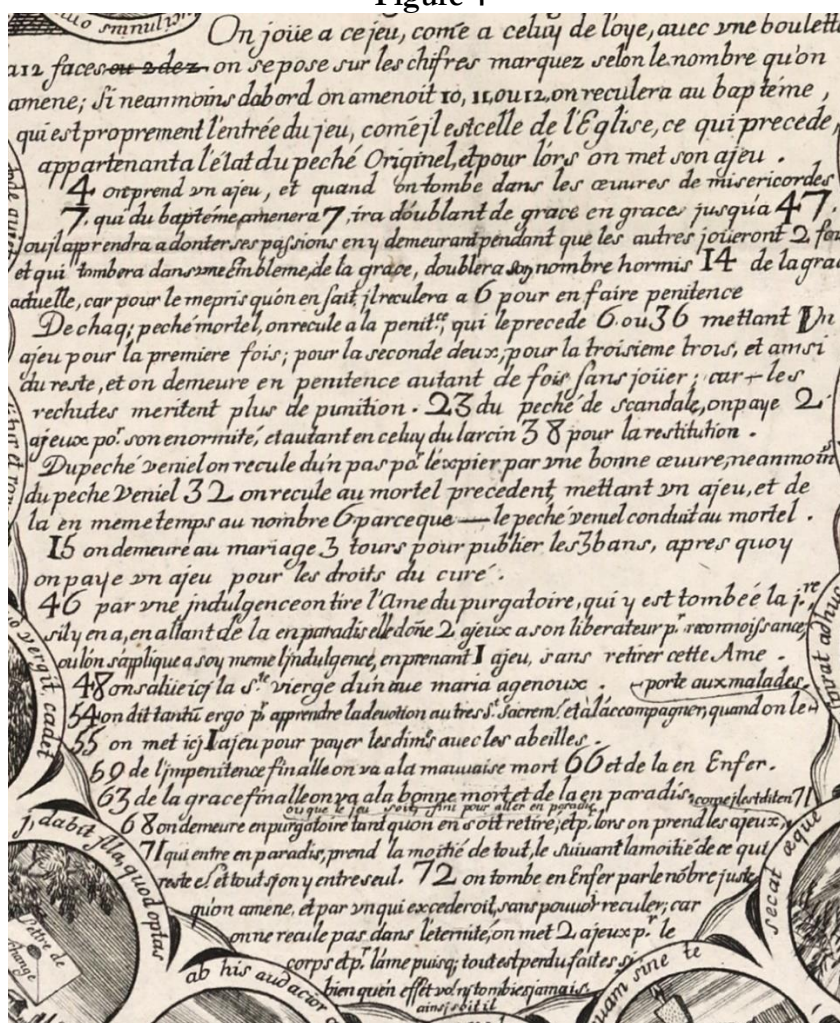 Figure 4
On joüe a ce jeu, come a celuy de l'oye, auec vne boulette
a 12 faces ou 2 dez on se pose sur les chifres marquez selon le nombre qu'on
amene; si neanmoins dabord on amenoit 10, 11, ou 12, on reculera au baptéme,
qui est proprement l'entrée du jeu, com̃e jl est celle de l'Eglise, ce qui precede,
appartenant a l'état du peché Originel, et pour lórs on met son ajeu.
4 on prend vn ajeu, et quand on tombe dans les œuures de misericordes
7. qui du baptéme amenera 7, ira doublant de grace en graces jusqu'a 47.
ou jl apprendra a donter ses passions en y demeurant pendant que les autres joüeront 2 foi
et qui tombera dans vne Embleme, de la grace, doublera son nombre hormis 14 de la grac
actuelle, car pour le mepris qu'on en fait, jl reculera a 6 pour en faire penitence
De chaq; peché mortel, on recule a la penit.ce qui le precede 6. ou 36 mettant Vn
ajeu pour la premiere fois; pour la seconde deux, pour la troisieme trois, et ainsi
du reste, et on demeure en penitence autant de fois sans joüer; car les
rechutes meritent plus de punition. 23 du peché de scandale, on paye 2
ajeux po.r son enormité, et autant en celuy du larcin 38 pour la restitution.
Du peché veniel on recule du'n pas po.r l'éxpier par vne bonne œuure, neanmoins
du peche Veniel 32 on recule au mortel precedent, mettant vn ajeu, et de
la en meme temps au nombre 6. parce que — le peché veniel conduit au mortel.
15 on demeure au mariage 3 tours pour publier les 3 bans, apres quoy
on paye vn ajeu pour les droits du curé.
46 par vne jndulgence on tire l'Ame du purgatoire, qui y est tombée la j.re
s'il y en a, en allant de la en paradis elle doñe 2 ajeux a son liberateur p.r reconnoissance,
ou lón s'applique a soy meme l'jndulgence, en prenant 1 ajeu, sans retirer cette Ame.
48 on salüe icj la s.te vierge du'n aue maria a genoux. porte aux malades.
54 on dit tantũ ergo p.r apprendre la deuotion au tres s.t Sacrem.t et a l'áccompagner, quand on le
55 on met icj 1 ajeu pour payer les dimes auec les abeilles.
59 de l'jmpenitence finalle on va a la mauuaise mort 66 et de la en Enfer.
63 de la grace finalle on va a la bonne mort et de la en paradis, come jl est dit en 71
ou que le jeu soit fini pour aller en paradis
68 on demeure en purgatoire tant qu'on en soit retiré; et p. lors on prend les ajeux,
71 qui entre en paradis, prend la moitié de tout, le suiuant la moitié de ce qui
reste &c et tout si on y entre seul. 72 on tombe en Enfer par le nóbre juste
qu'on amene, et par vn qui excederoit, sans pouuoir reculer; car
on ne recule pas dans l'eternité, on met 2 ajeux p.r le
corps et p.r lame puisq; tout est perdu faites si
bien qu'en effét vo.s n'y tombies jamais.
ainsi soit il
vergit cadet
j, dabit jlla, quod optas
Lettre de change
ab his audacior
quam sine te
secat æque